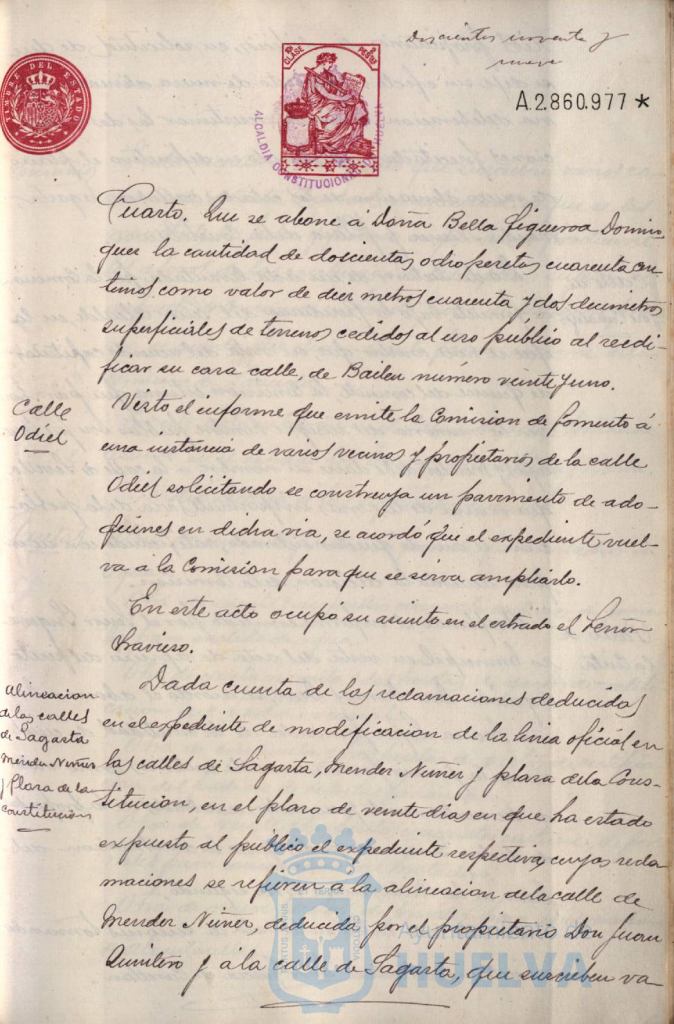 Doscientos noventa y
nueve
TIMBRE DEL ESTADO
10ª CLASE
2 PESETAS
A.2860.977 *
ALCALDIA CONSTITUCIONAL HUELVA
Cuarto. Que se abone á Doña Bella Figueroa Domin
guez la cantidad de doscientas ocho pesetas cuarenta cen
timos como valor de diez metros cuarenta y dos decimetros
superficiales de terrenos cedidos al uso público al reedi-
ficar su casa calle, de Bailen número veinte y uno.
Calle
Odiel
Visto el informe que emite la Comision de fomento á
una instancia de varios vecinos y propietarios de la calle
Odiel solicitando se construya un pavimento de ado-
quines en dicha via, se acordó que el expediente vuel-
va á la Comision para que se sirva ampliarlo.
En este acto ocupó su asiento en el estrado el Señor
Travieso.
Alineacion
de las calles
de Sagasta
Mendez Nuñez
y Plaza de la
Constitución
Dada cuenta de las reclamaciones deducidas
en el expediente de modificacion de la linia oficial en
las calles de Sagasta, Mendez Nuñez y plaza de la Cons-
titucion, en el plazo de veinte dias en que ha estado
expuesto al público el expediente respectivo, cuyas recla
maciones se refieren a la alineacion de la calle de
Mendez Nuñez, deducida por el propietario Don Juan
Quintero y á la calle de Sagasta, que suscriben va-
HUELVA